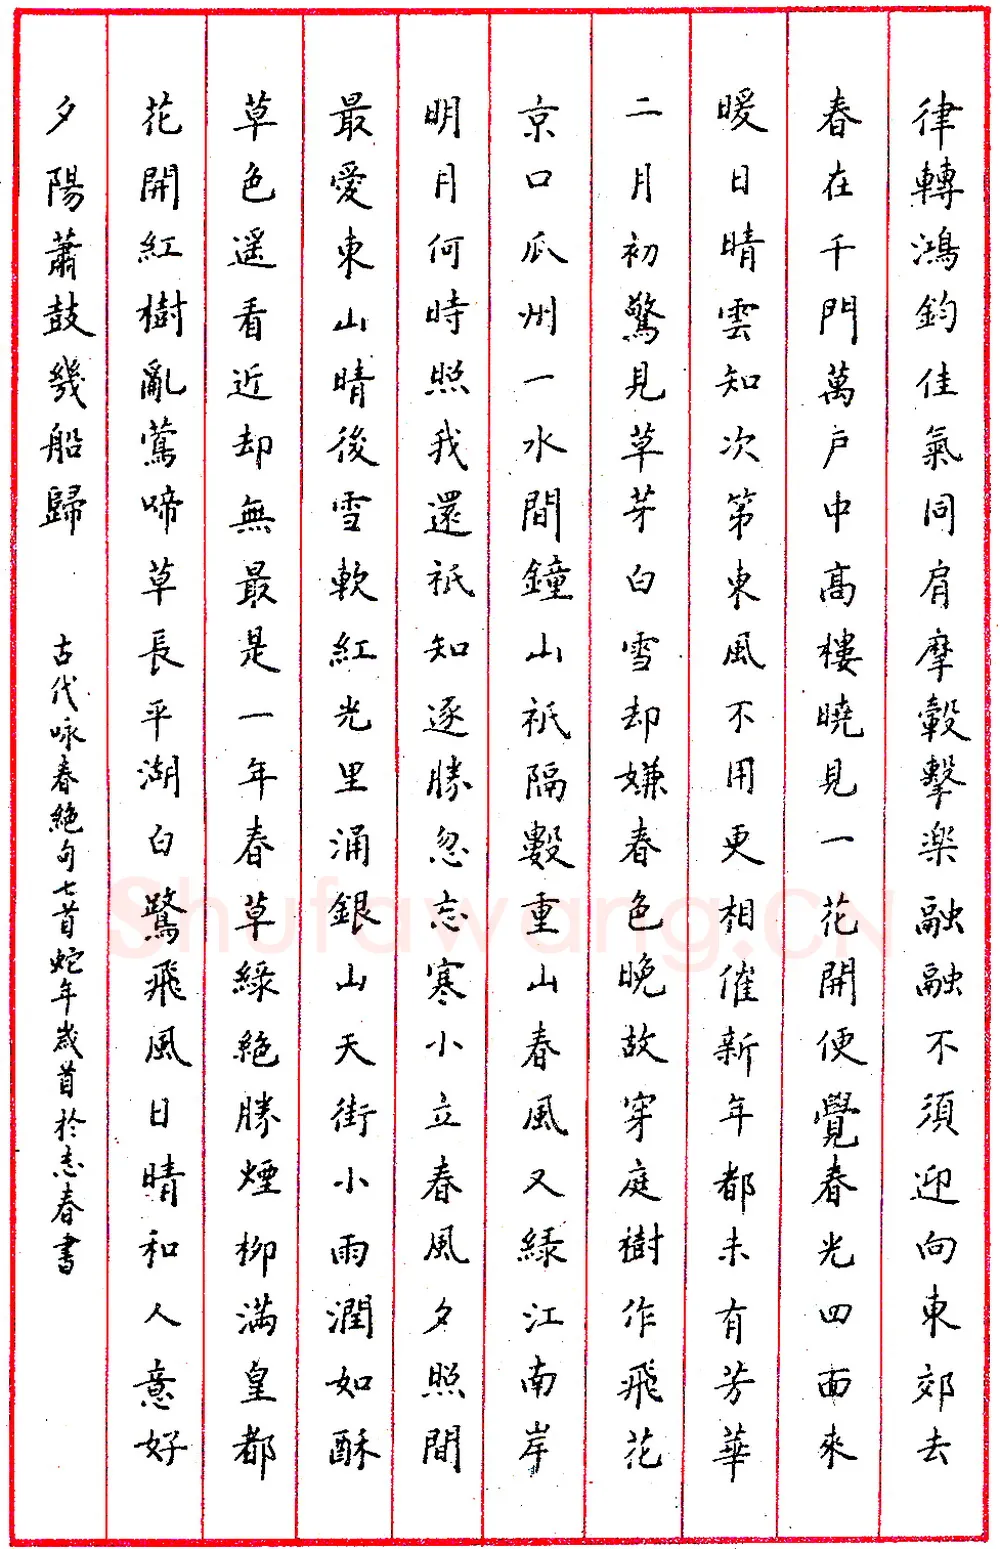 律轉鴻鈞佳氣同肩摩轂擊楽融融不須迎向東郊去
春在千門萬戶中高樓曉見一花開便覺春光四面來
暖日晴雲知次第東風不用更相催新年都未有芳華
二月初驚見草芽白雪却嫌春色晚故穿庭樹作飛花
京口瓜州一水間鐘山祇隔數重山春風又綠江南岸
明月何時照我還祇知逐勝忽忘寒小立春風夕照間
最愛東山晴後雪軟紅光里涌銀山天街小雨潤如酥
草色遥看近却無最是一年春草綠絶勝煙柳滿皇都
花開紅樹亂鶯啼草長平湖白鷺飛風日晴和人意好
夕陽蕭鼓幾船歸
古代咏春絶句七首蛇年歲首於志春書
Shufawang.CN